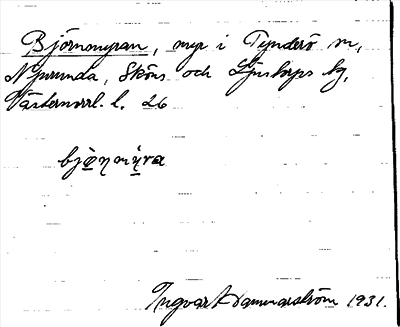 Björnmyran, myr i Tynderö sn,
Njurunda, Sköns och Ljustorps tg,
Västernorrl. l. 26
bjø̀ηmy̆ra
Ingvar Hammarström 1931.